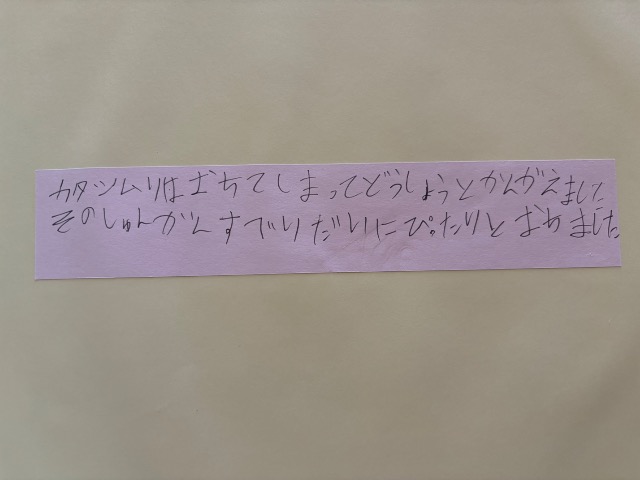 カタツムリはおちてしまってどうしょうとかんがえました
そのしゅんかんすでりだいにぴったりとおちました